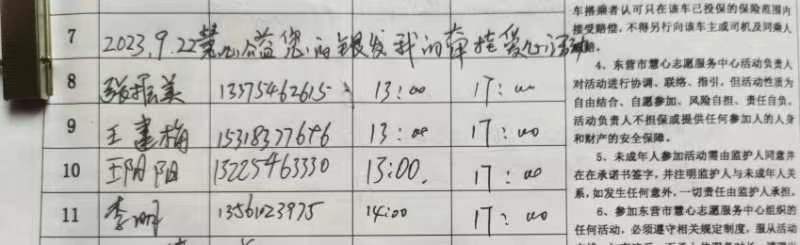 7 2023.9.22慧心公益您的银发我的牵挂爱心活动
8 张振美 13375462615 13:00 17:00
9 王建梅 15318377696 13:00 17:00
10 王阳阳 13225463330 13:00. 17:00
11 李丽 13561023975 14:00 17:00
车搭乘者认可只在该车已投保的保险范围内
接受赔偿，不得另行向该车主或司机及同乘人
4、东营市慧心志愿服务中心活动负责人
对活动进行协调、联络、指引，但活动性质为
自由结合、自愿参加、风险自担、责任自负。
活动负责人不担保或提供任何参加人的人身
和财产的安全保障。
5、未成年人参加活动需由监护人同意并
在在承诺书签字，并注明监护人与未成年人关
系，如发生任何意外，一切责任由监护人承担。
6、参加东营市慧心志愿服务中心组织的
任何活动，必须遵守相关规定制度，服从活动